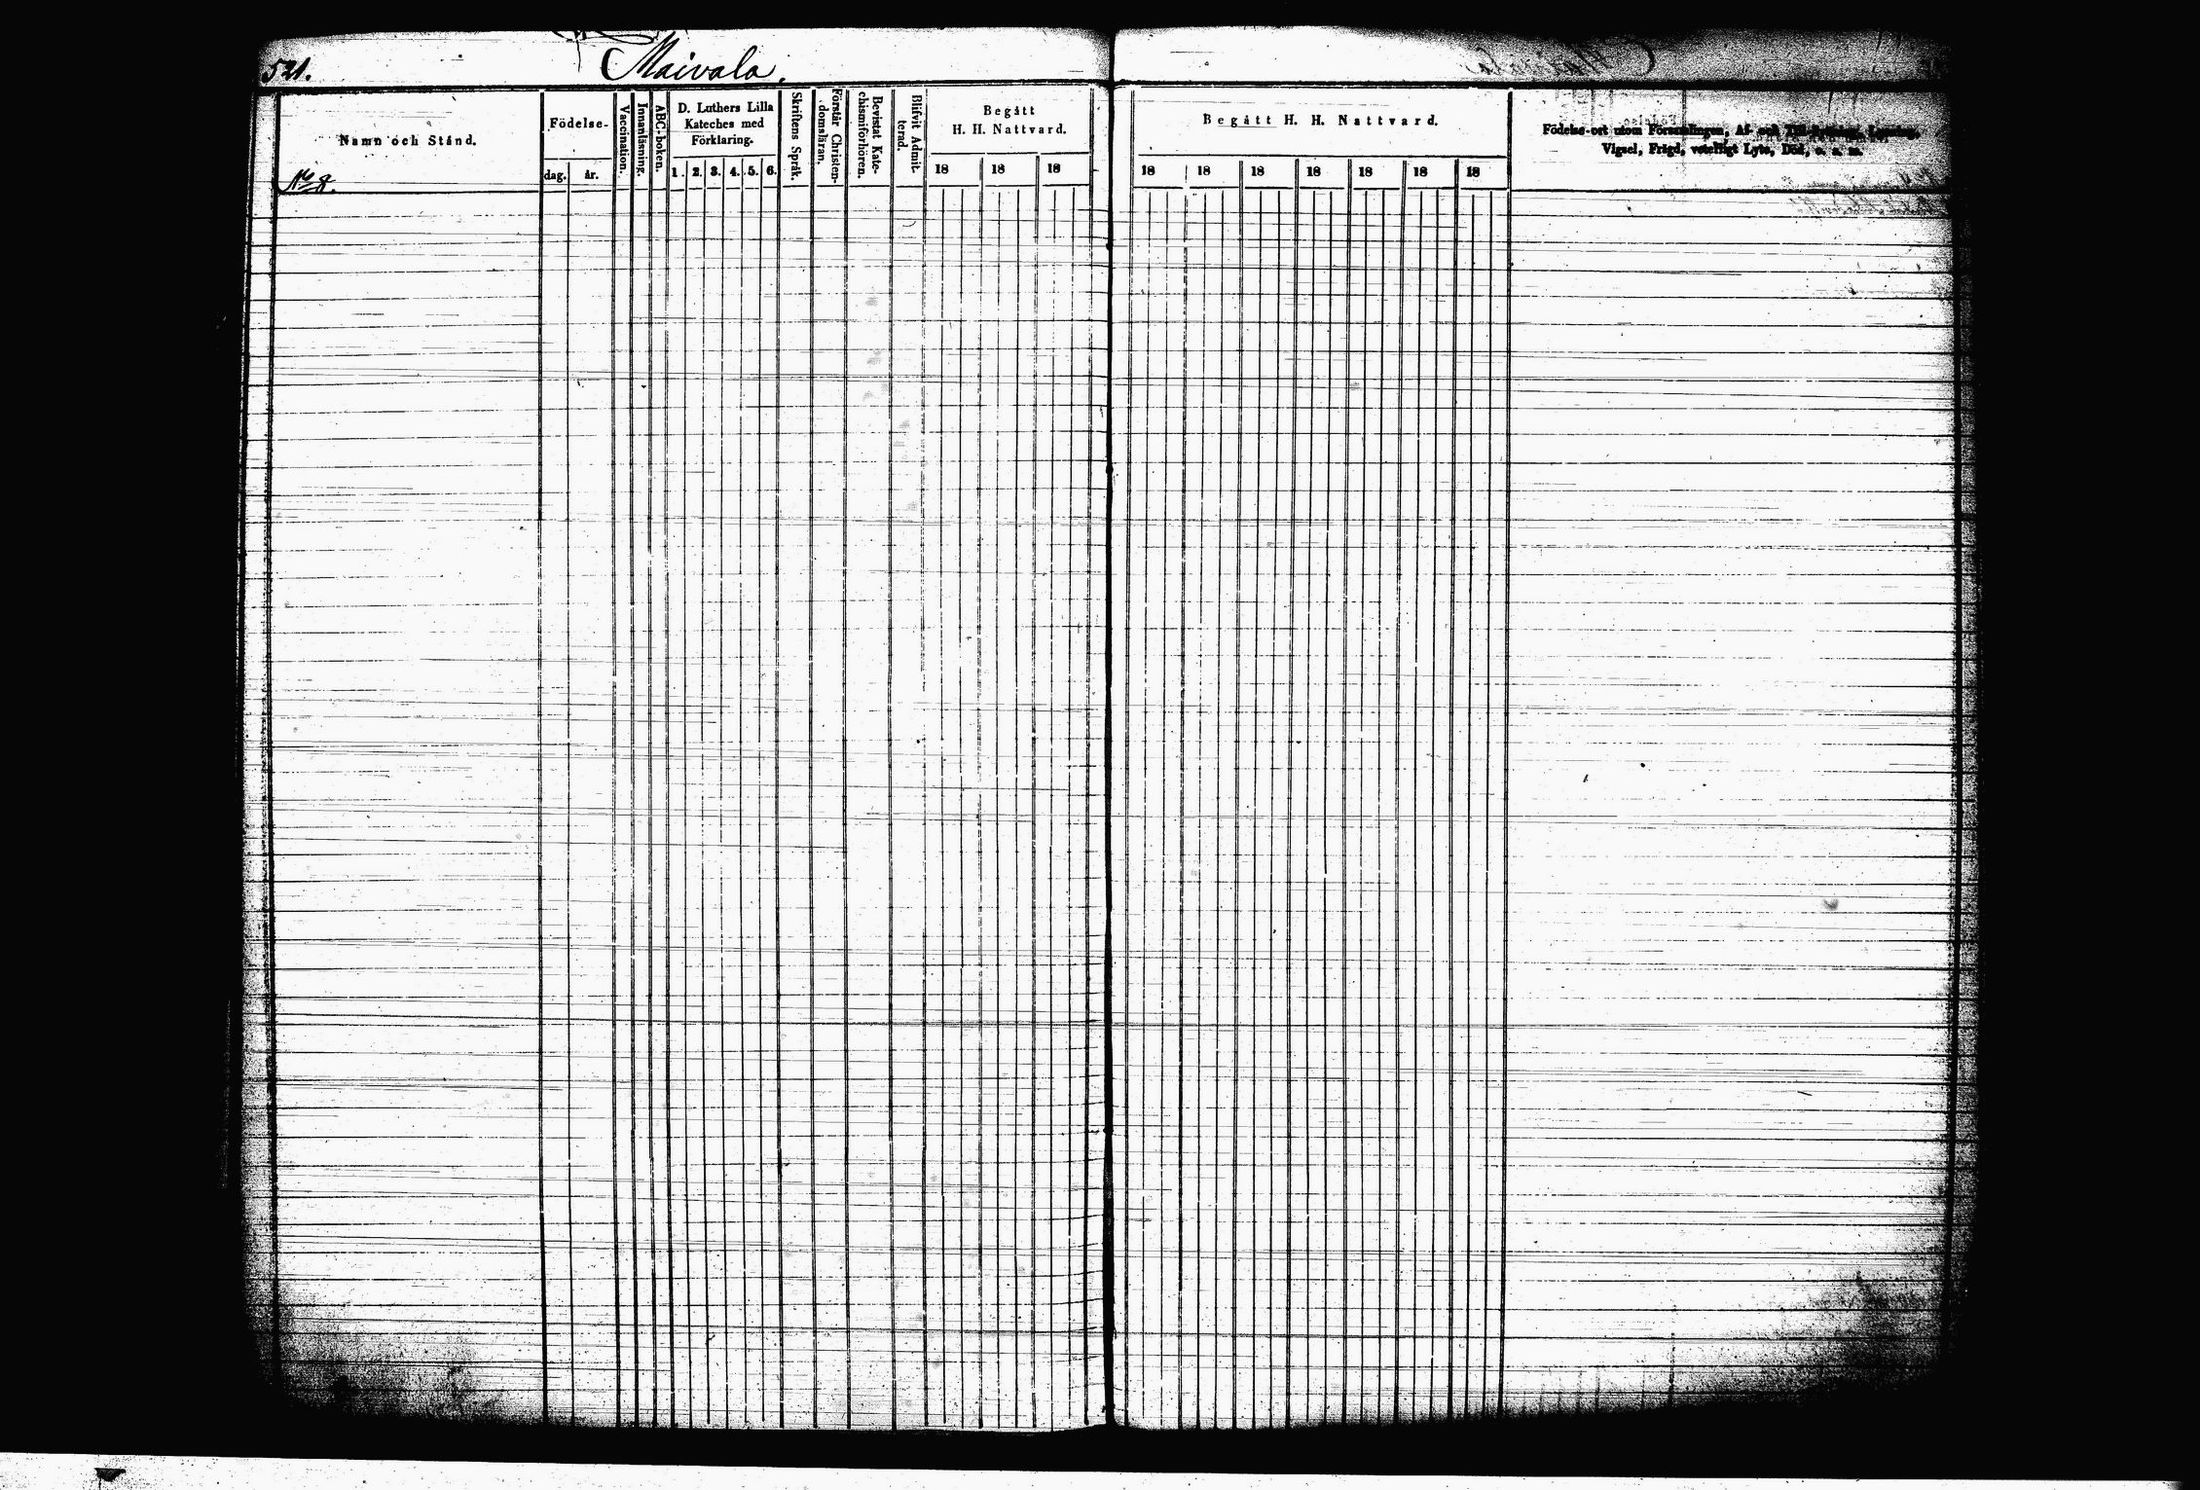 521.
Maivala.
Namn och Stånd.
No 8.
Födelse-
dag.
år.
Vaccination.
Innanläsning.
ABC-boken.
D. Luthers Lilla
Kateches med
Förklaring.
1. 2. 3. 4. 5. 6.
Skriftens Språk.
Förstår Christen-
domsläran.
Bevistat Kate-
chismiförhören.
Blifvit Admit-
terad.
Begått
H. H. Nattvard.
18 18 18
Begått H. H. Nattvard.
18 18 18 18 18 18 18
Födelse-ort utom Församlingen, Af- och Till-flyttning, Lysning,
Vigsel, Frägd, veterligt Lyte, Död, o. s. m.